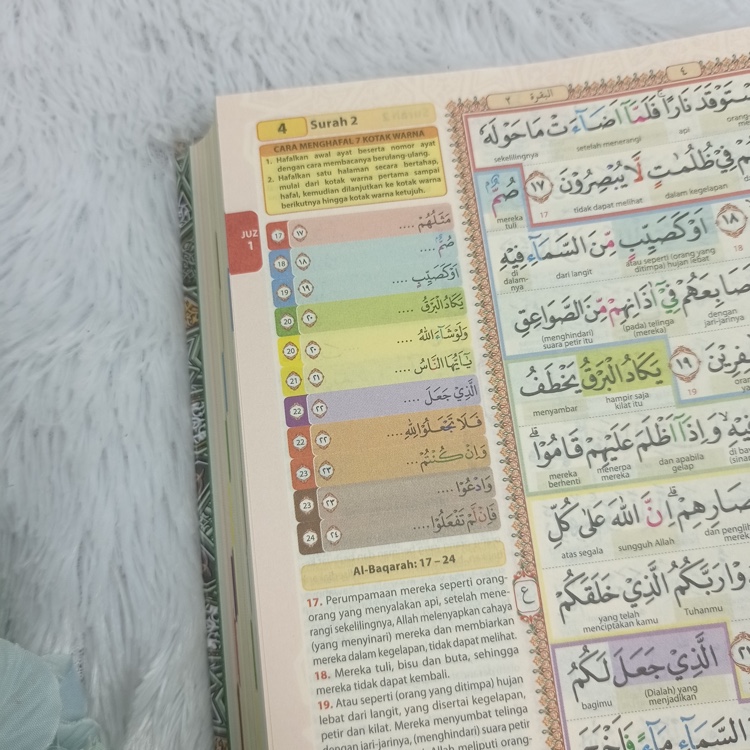 4 Surah 2
CARA MENGHAFAL 7 KOTAK WARNA
1. Hafalkan awal ayat beserta nomor ayat
dengan cara membacanya berulang-ulang.
2. Hafalkan satu halaman secara bertahap,
mulai dari kotak warna pertama sampai
hafal, kemudian dilanjutkan ke kotak warna
berikutnya hingga kotak warna ketujuh.
JUZ
1
17 ١٧ مَثَلُهُمْ ....
18 ١٨ صُمٌّ ....
19 ١٩ أَوْ كَصَيِّبٍ ....
20 ٢٠ يَكَادُ الْبَرْقُ ....
20 ٢٠ وَلَوْ شَآءَ اللّٰهُ ....
21 ٢١ يٰٓاَيُّهَا النَّاسُ ....
22 ٢٢ الَّذِيْ جَعَلَ ....
22 ٢٢ فَلَا تَجْعَلُوْا لِلّٰهِ ....
23 ٢٣ وَاِنْ كُنْتُمْ ...
23 ٢٣ وَادْعُوْا ....
24 ٢٤ فَاِنْ لَّمْ تَفْعَلُوْا ....
Al-Baqarah: 17 – 24
17. Perumpamaan mereka seperti orang-
orang yang menyalakan api, setelah mene-
rangi sekelilingnya, Allah melenyapkan cahaya
(yang menyinari) mereka dan membiarkan
mereka dalam kegelapan, tidak dapat melihat.
18. Mereka tuli, bisu dan buta, sehingga
mereka tidak dapat kembali.
19. Atau seperti (orang yang ditimpa) hujan
lebat dari langit, yang disertai kegelapan,
petir dan kilat. Mereka menyumbat telinga
dengan jari-jarinya, (menghindari) suara petir
Allah meliputi orang-
البقرة ٢
٤
اسْتَوْقَدَ نَارًا فَلَمَّآ اَضَآءَتْ مَا حَوْلَهٗ
api setelah menerangi sekelilingnya
فِيْ ظُلُمٰتٍ لَّا يُبْصِرُوْنَ ١٧ صُمٌّ
dalam kegelapan tidak dapat melihat 17 mereka
tuli
١٨ اَوْ كَصَيِّبٍ مِّنَ السَّمَآءِ فِيْهِ
18 atau seperti (orang yang
ditimpa) hujan lebat dari langit di
dalam-
nya
اَصَابِعَهُمْ فِيْٓ اٰذَانِهِمْ مِّنَ الصَّوَاعِقِ
dengan
jari-jarinya (pada) telinga
(mereka) (menghindari)
suara petir itu
١٩ يَكَادُ الْبَرْقُ يَخْطَفُ
19 hampir saja
kilat itu menyambar
فِيْهِ وَاِذَآ اَظْلَمَ عَلَيْهِمْ قَامُوْا
dan apabila
gelap menerpa
mereka mereka
berhenti
اِنَّ اللّٰهَ عَلٰى كُلِّ
sungguh Allah atas segala
رَبَّكُمُ الَّذِيْ خَلَقَكُمْ
Tuhanmu yang telah
menciptakan kamu
ع
الَّذِيْ جَعَلَ لَكُمُ
(Dialah) yang
menjadikan bagimu